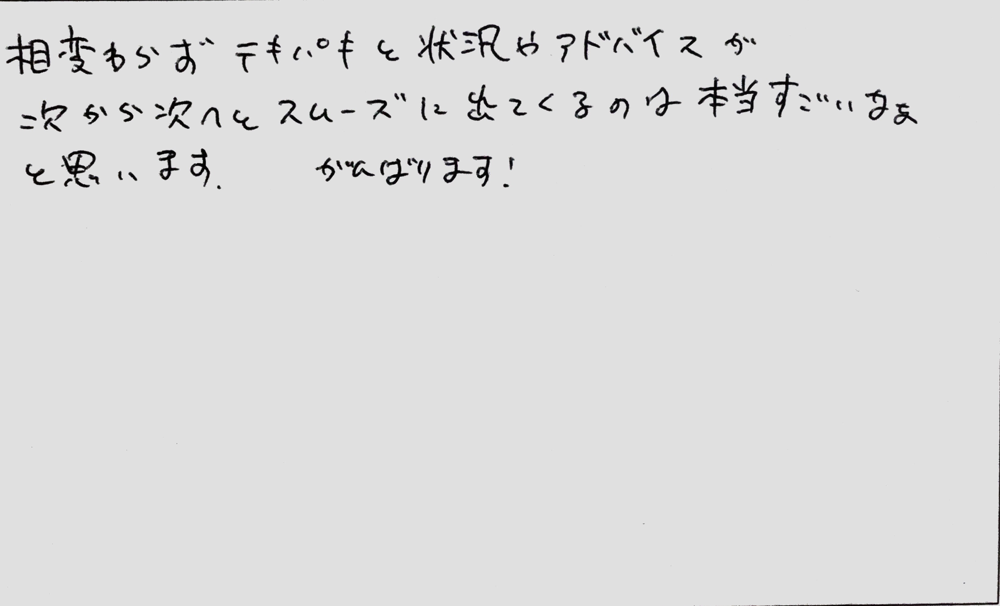 相変わらずテキパキと状況やアドバイスが
次から次へとスムーズに出てくるのは本当すごいなぁ
と思います. がんばります!